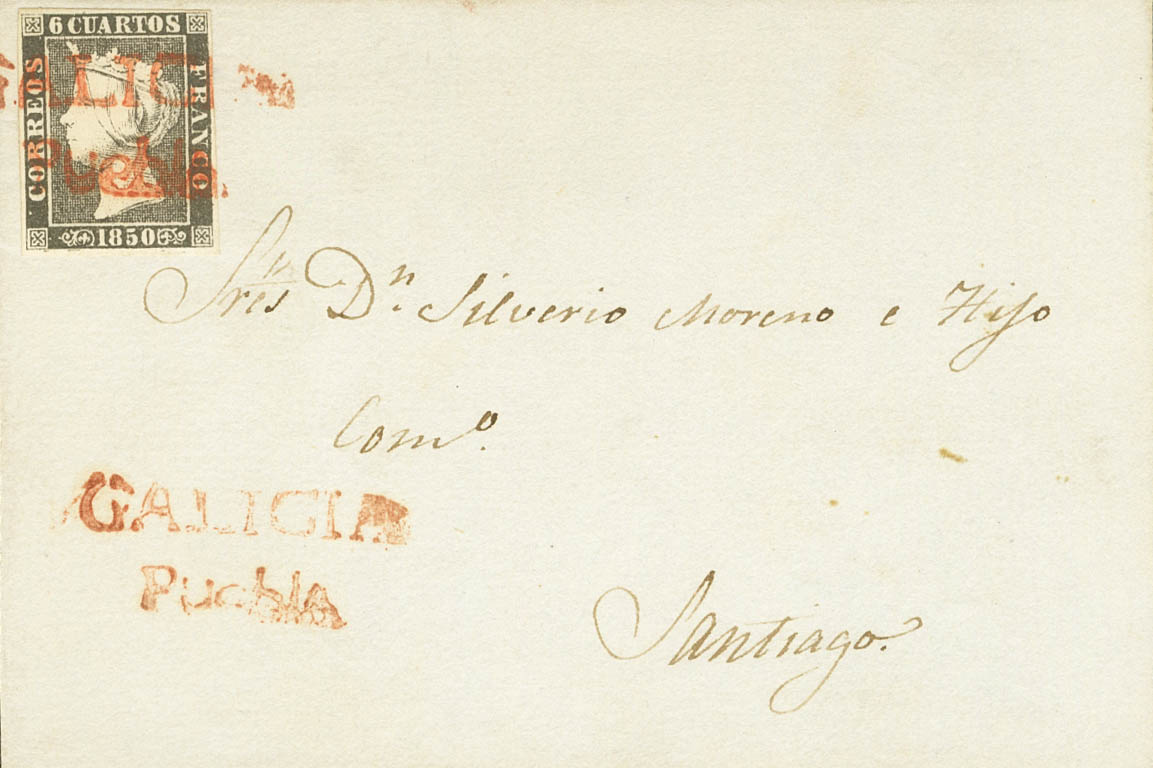 6 CUARTOS
CORREOS
FRANCO
1850
GALICIA
Puebla.
Sres Dn. Silverio Moreno e Hijo
Como.
GALICIA
PueblA
Santiago.